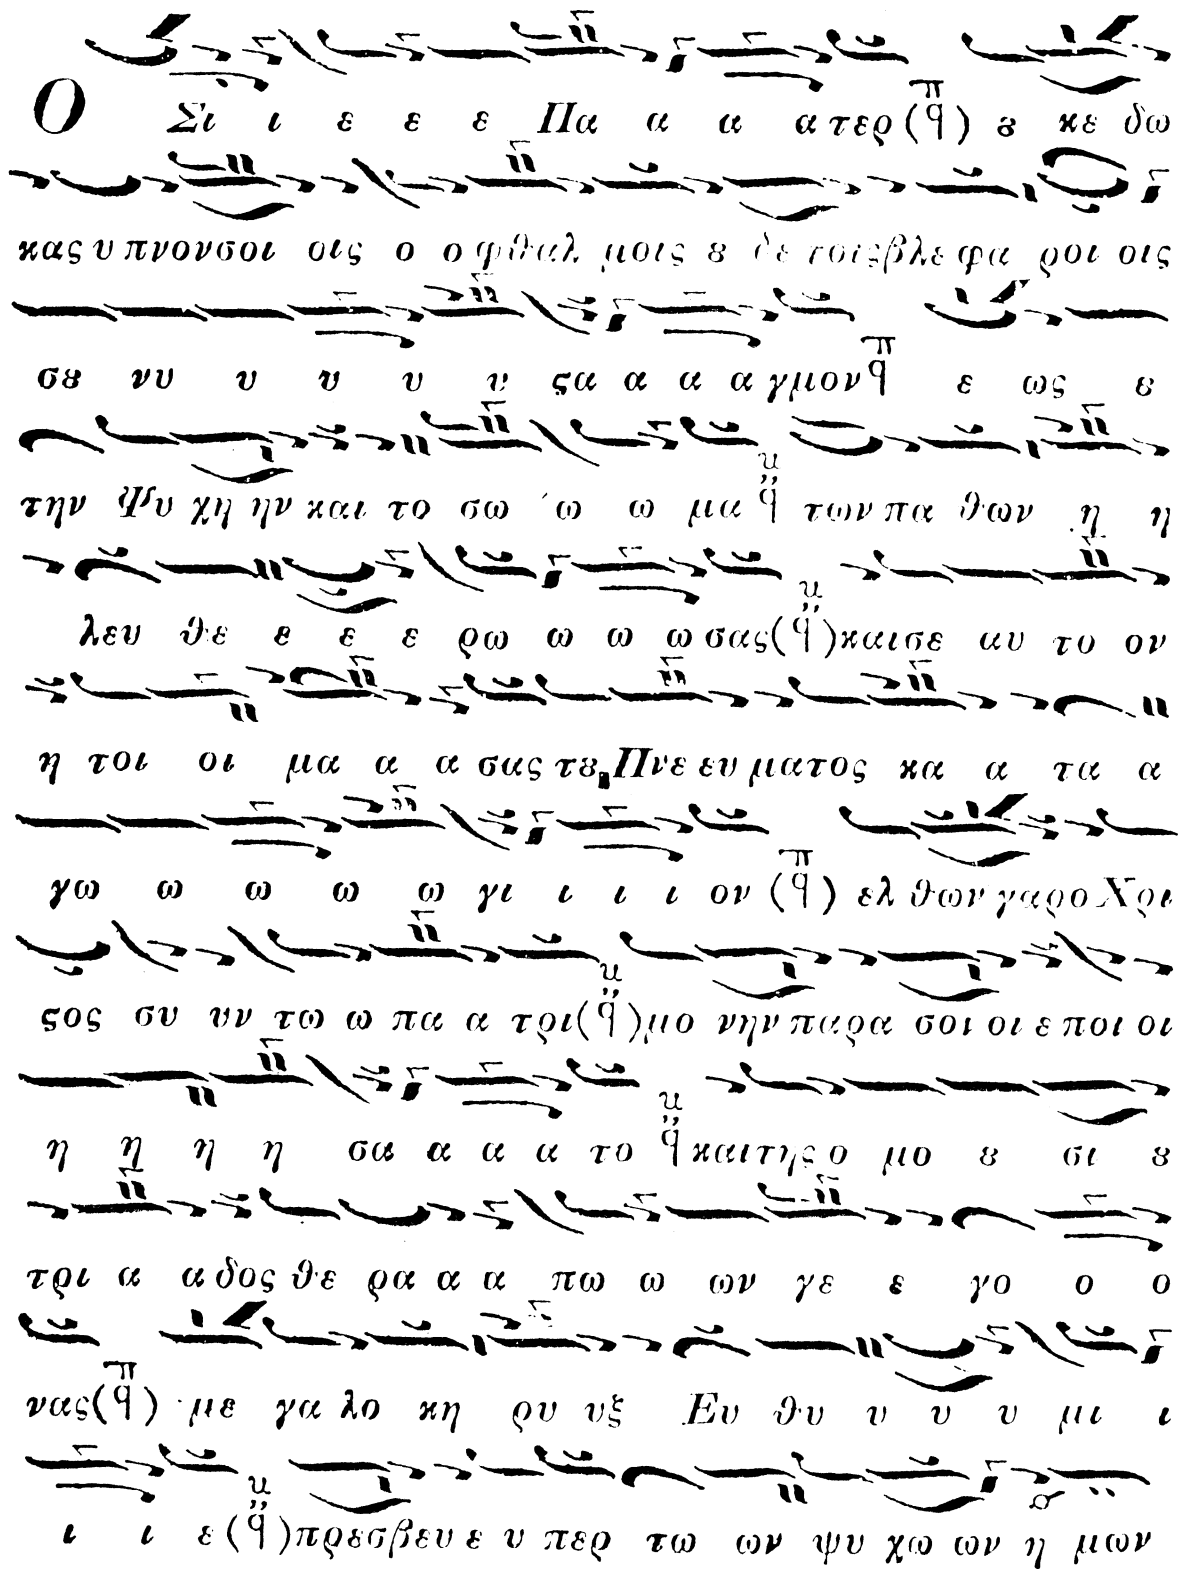 Ο Σι ι ε ε ε Πα α α α τερ (π̅ q̈) ȣ κε δω
κας υ πνονσοι οις ο οφθαλ μοις ȣ δε τοιςβλε φα ροι οις
σȣ νυ υ υ υ υ ςα α α α γμον π q ε ως ȣ
την Ψυ χη ην και το σω ω ω μα q των πα θων η η
λευ θε ε ε ε ρω ω ω ω σας (q) καισε αυ το ον
η τοι οι μα α α σας τȣ Πνε ευ ματος κα α τα α
γω ω ω ω ω γι ι ι ι ον (π q) ελ θων γαρο Χρι
ςος συ υν τω ω πα α τρι (q) μο νην παρα σοι οι ε ποι οι
η η η η σα α α α το q και της ο μο ȣ σι ȣ
τρι α α δος θε ρα α α πω ω ων γε ε γο ο ο
νας (π q) με γα λο κη ρυ υξ Ευ θυ υ υ υ μι ι
ι ι ε (q) πρεσβευ ε υ περ τω ων ψυ χω ων η μων